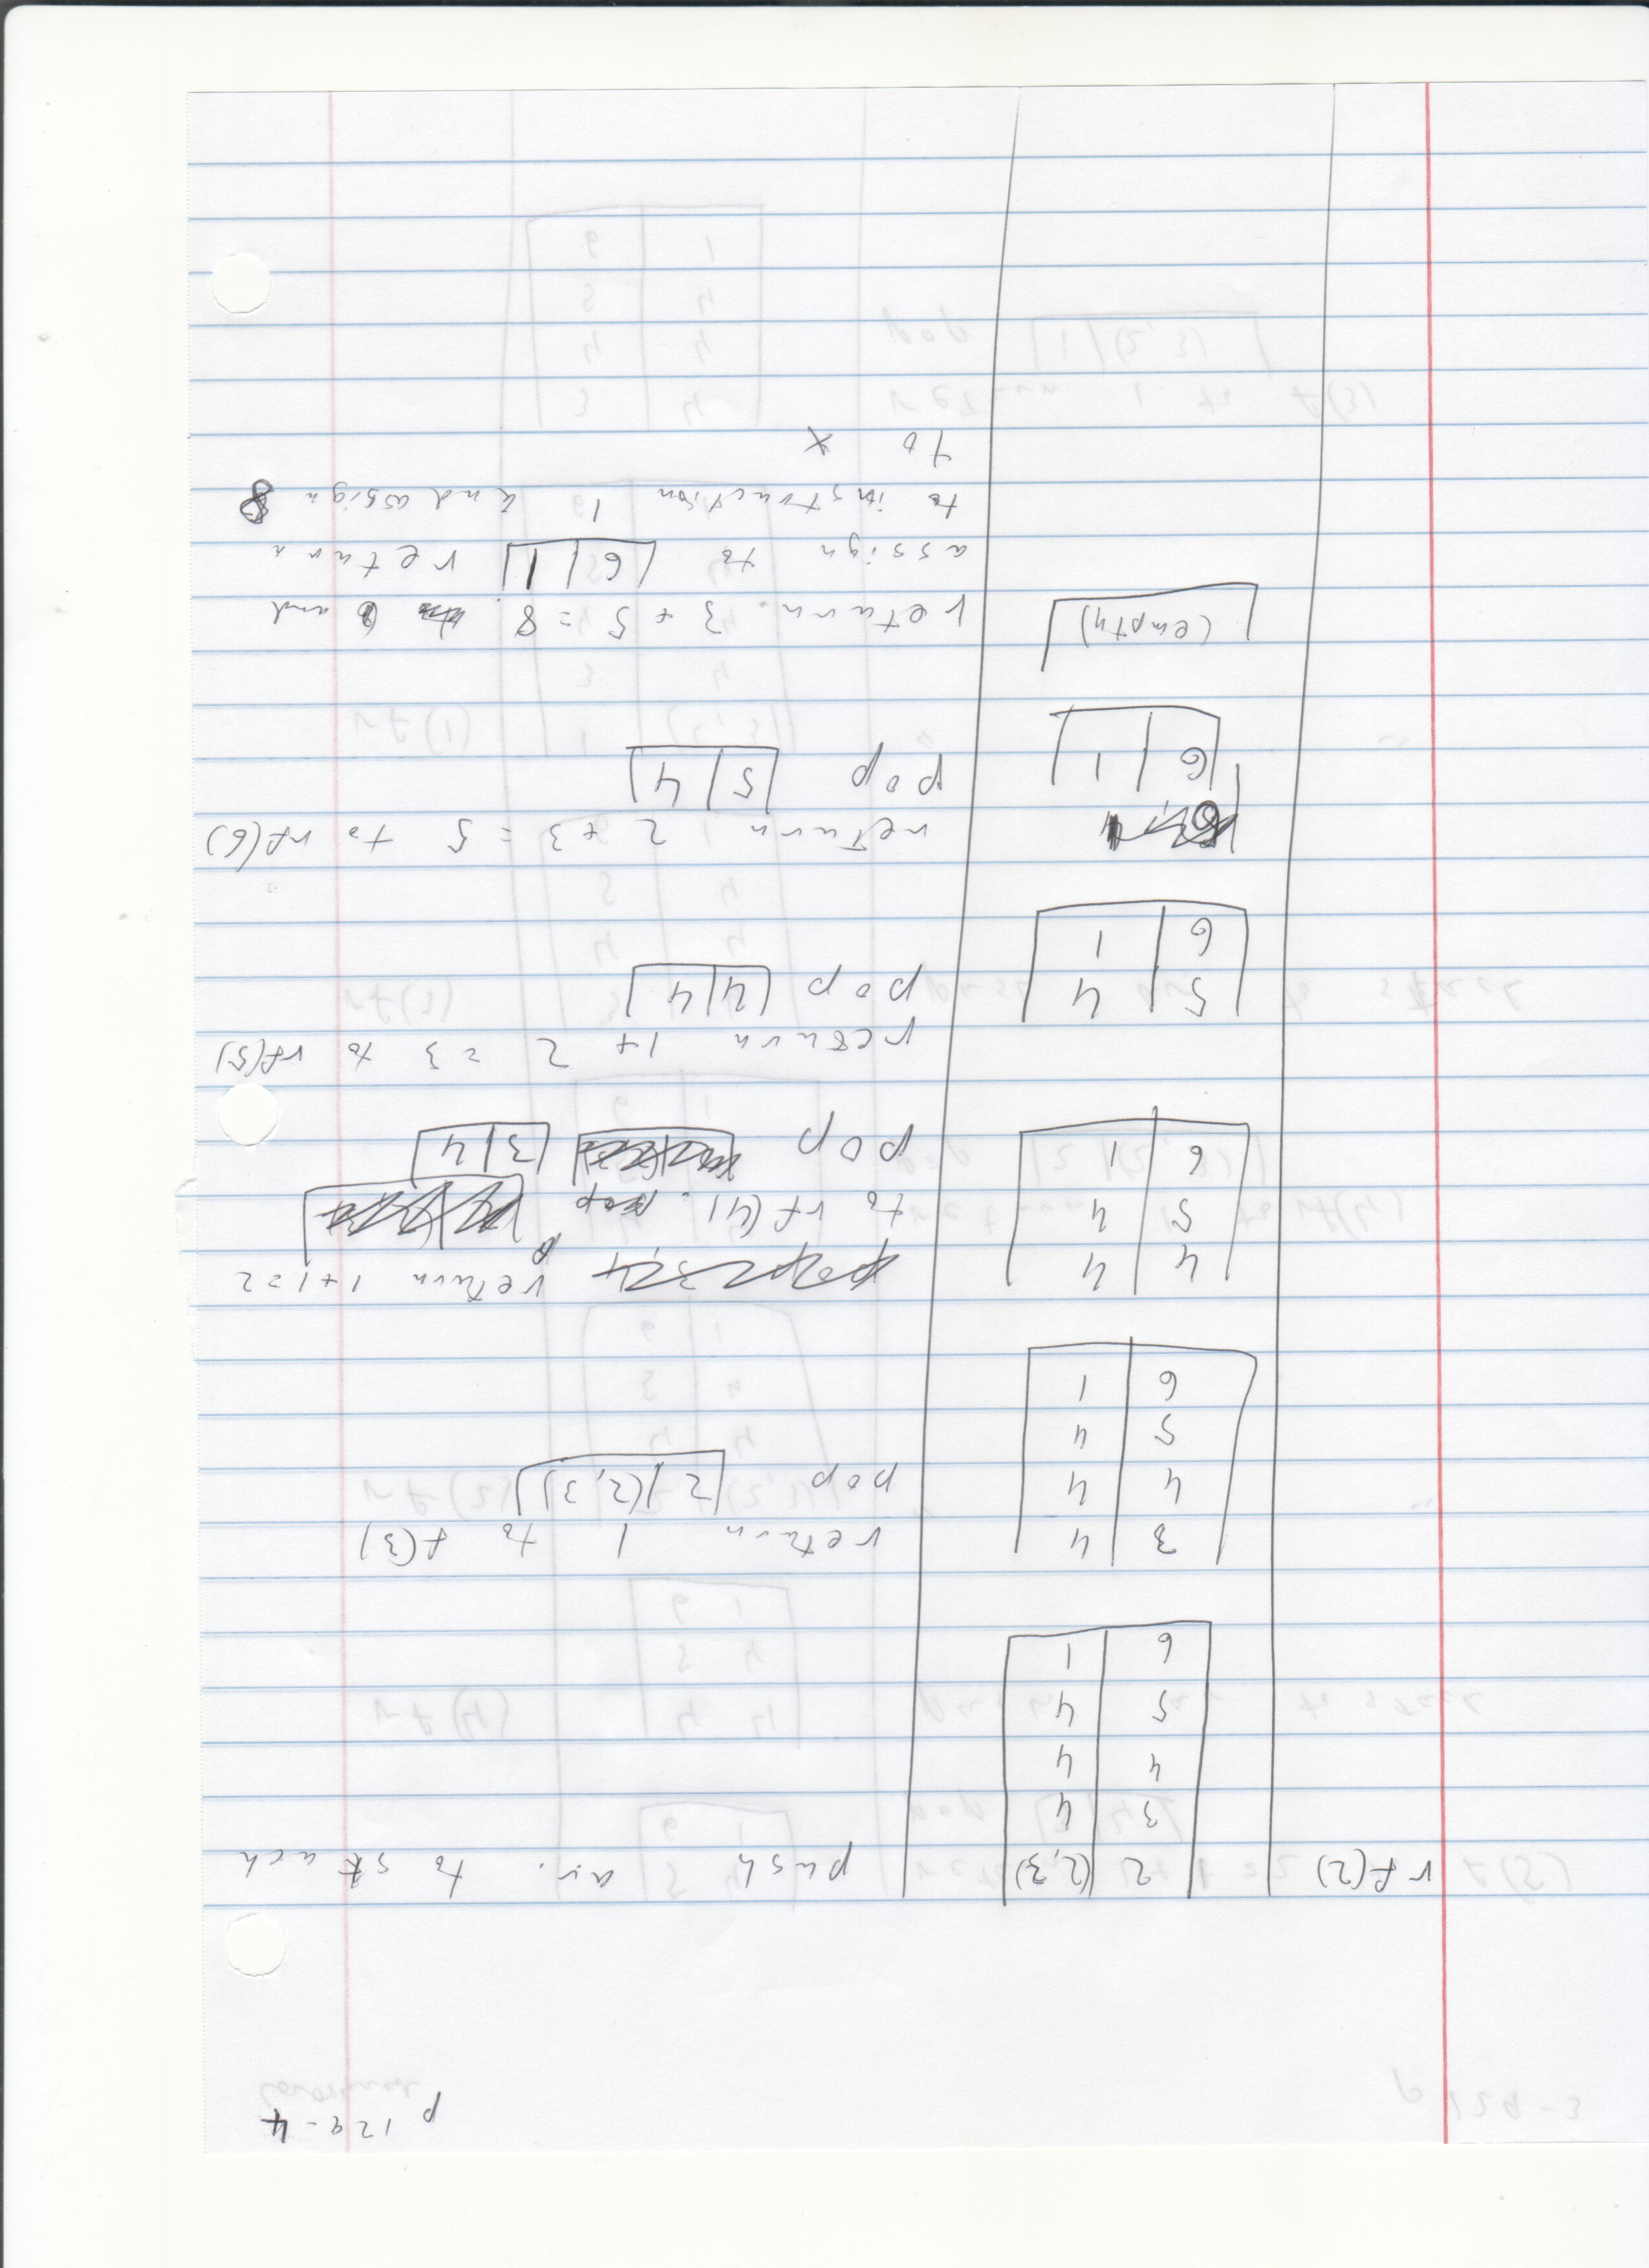 p 129-4
rf(2) 2 (2,3) push a.r. to stack
3 4
4 4
5 4
6 1
3 4 return 1 to f(3)
4 4 pop 2 (2,3)
5 4
6 1
4 4 return 1+1=2
5 4 to rf(4).
6 1 pop 3 4
5 4 return 1+2 = 3 to rf(5)
6 1 pop 4 4
return 2+3 = 5 to rf(6)
6 1 pop 5 4
(empty) return. 3+5=8. and
assign to 6 1 return
to instruction 1 and assign 8
to x